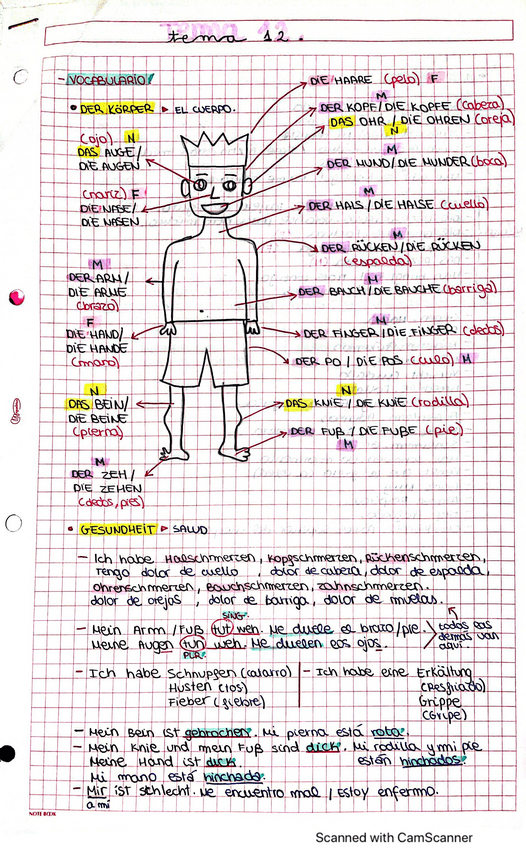 tema 12.
- VOCABULARIO
• DER KÖRPER ▹ EL CUERPO.
DIE HAARE (pelo) F
M
DER KOPF/DIE KOPFE (cabeza)
DAS OHR/DIE OHREN (oreja)
N
(ojo) N
DAS AUGE/
DIE AUGEN
M
DER MUND/DIE MUNDER (boca)
(nariz) F
DIE NASE/
DIE NASEN
M
DER HALS/DIE HALSE (cuello)
M
DER RÜCKEN/DIE RÜCKEN
(espalda)
M
DER ARM/
DIE ARME
(brazo)
M
DER BAUCH/DIE BAUCHE (barriga)
F
DIE HAND/
DIE HANDE
(mano)
M
DER FINGER/DIE FINGER (dedos)
DER PO / DIE POS (culo) M
N
DAS BEIN/
DIE BEINE
(pierna)
N
DAS KNIE / DIE KNIE (rodilla)
DER FUß / DIE FUßE (pie)
M
M
DER ZEH/
DIE ZEHEN
(dedos, pies)
• GESUNDHEIT ▹ SALUD
- Ich habe Halsschmerzen, Kopfschmerzen, Rückenschmerzen,
Tengo dolor de cuello, dolor de cabeza, dolor de espalda,
ohrenschmerzen, Bauchschmerzen, zahnschmerzen.
dolor de orejas, dolor de barriga, dolor de muelas.
SING.
- Mein Arm/Fuß tut weh. Me duele el brazo/pie.
Meine Augen tun weh. Me duelen los ojos.
PLUR.
todos los
demás van
aquí.
- Ich habe Schnupfen (catarro)
Husten (tos)
Fieber (fiebre)
- Ich habe eine Erkältung
(Resfriado)
Grippe
(Gripe)
- Mein Bein ist gebrochen. Mi pierna está rota.
- Mein Knie und mein Fuß sind dick. Mi rodilla y mi pie
están hinchados.
Meine Hand ist dick.
Mi mano está hinchada.
- Mir ist schlecht. Me encuentro mal / Estoy enfermo.
a mí
NOTE BOOK
Scanned with CamScanner